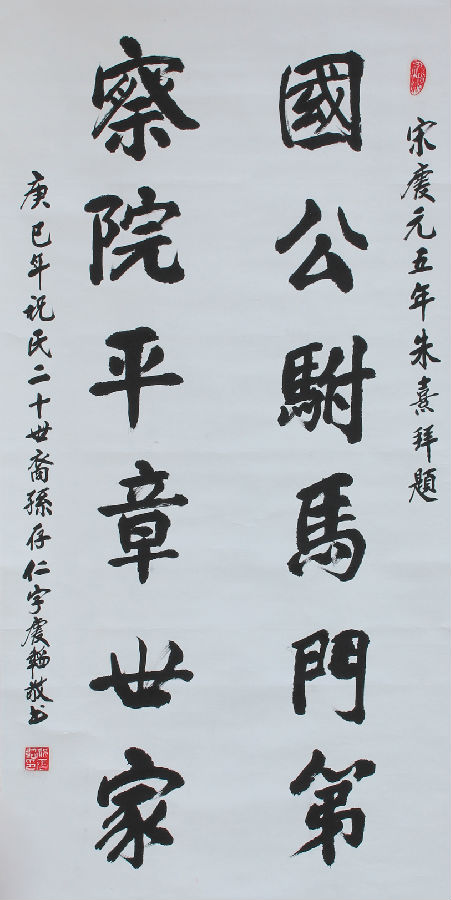 宋慶元五年朱熹拜題
國公駙馬門第
察院平章世家
庚巳年祝氏二十世裔孫存仁字慶敬书